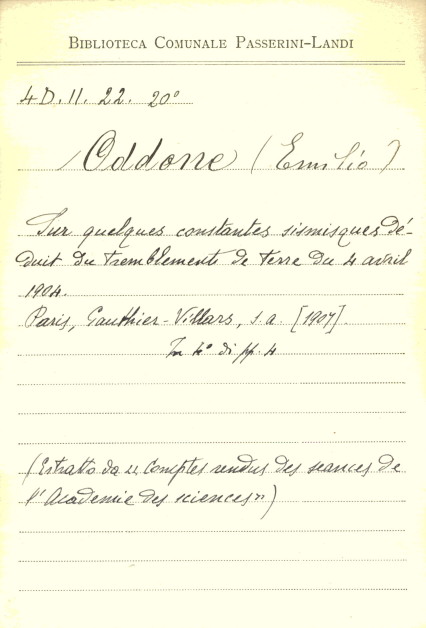 BIBLIOTECA COMUNALE PASSERINI-LANDI
4 D. 11. 22. 20°
Oddone (Emilio)
Sur quelques constantes sismisques dé-
duit du tremblements de terre du 4 avril
1904.
Paris, Gauthier-Villars, s. a. [1907].
In 4° di pp. 4
(Estratto da "Comptes rendus des seances de
l'Academie des sciences")